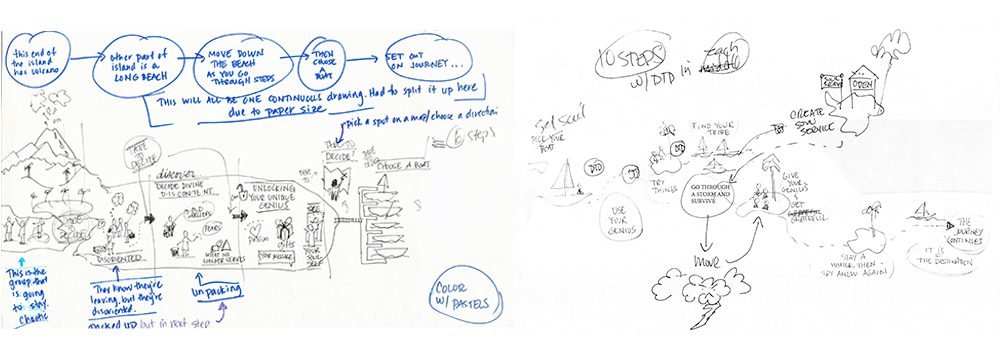 this end of
the island
has volcano
other part of
island is a
LONG BEACH
MOVE DOWN
THE BEACH
AS YOU GO
THROUGH STEPS
THEN
CHOSE
A
BOAT
SET OUT
ON JOURNEY...
THIS WILL ALL BE ONE CONTINUOUS drawing. Had to split it up here
due to paper size
pick a spot on a map/choose a direction
6 steps
TAKE TO
DECIDE
discover...
DECIDE DIVINE
DISCONTENT
OLD
BELIEFS
FEARS
WHAT NO
LONGER SERVES
DISORIENTED
UNLOCKING
YOUR UNIQUE
GENIUS
PASSION
GIFTS
YOUR MESSAGE
SEE
YOUR
SOUL
SELF
DECIDE!
CHOOSE A BOAT
This is the
group that
is going
to stay.
chaotic
They know they're
leaving, but they're
disoriented.
packed up but in next step
Unpacking
COLOR
W/ PASTELS
10 STEPS
W/ DTD in each
Set Sail
YOUR
BOAT
DTD
DTD
DTD
TRY
THINGS
USE
YOUR
GENIUS
FIND YOUR
TRIBE
GO THROUGH
A STORM AND
SURVIVE
Move
CREATE
SOUL
SERVICE
OPEN
GIVE
YOUR
GENIUS
GET
GRATEFUL
STAY A
WHILE, THEN
TRY ANEW AGAIN!
THE
JOURNEY
CONTINUES
IT IS
THE DESTINATION